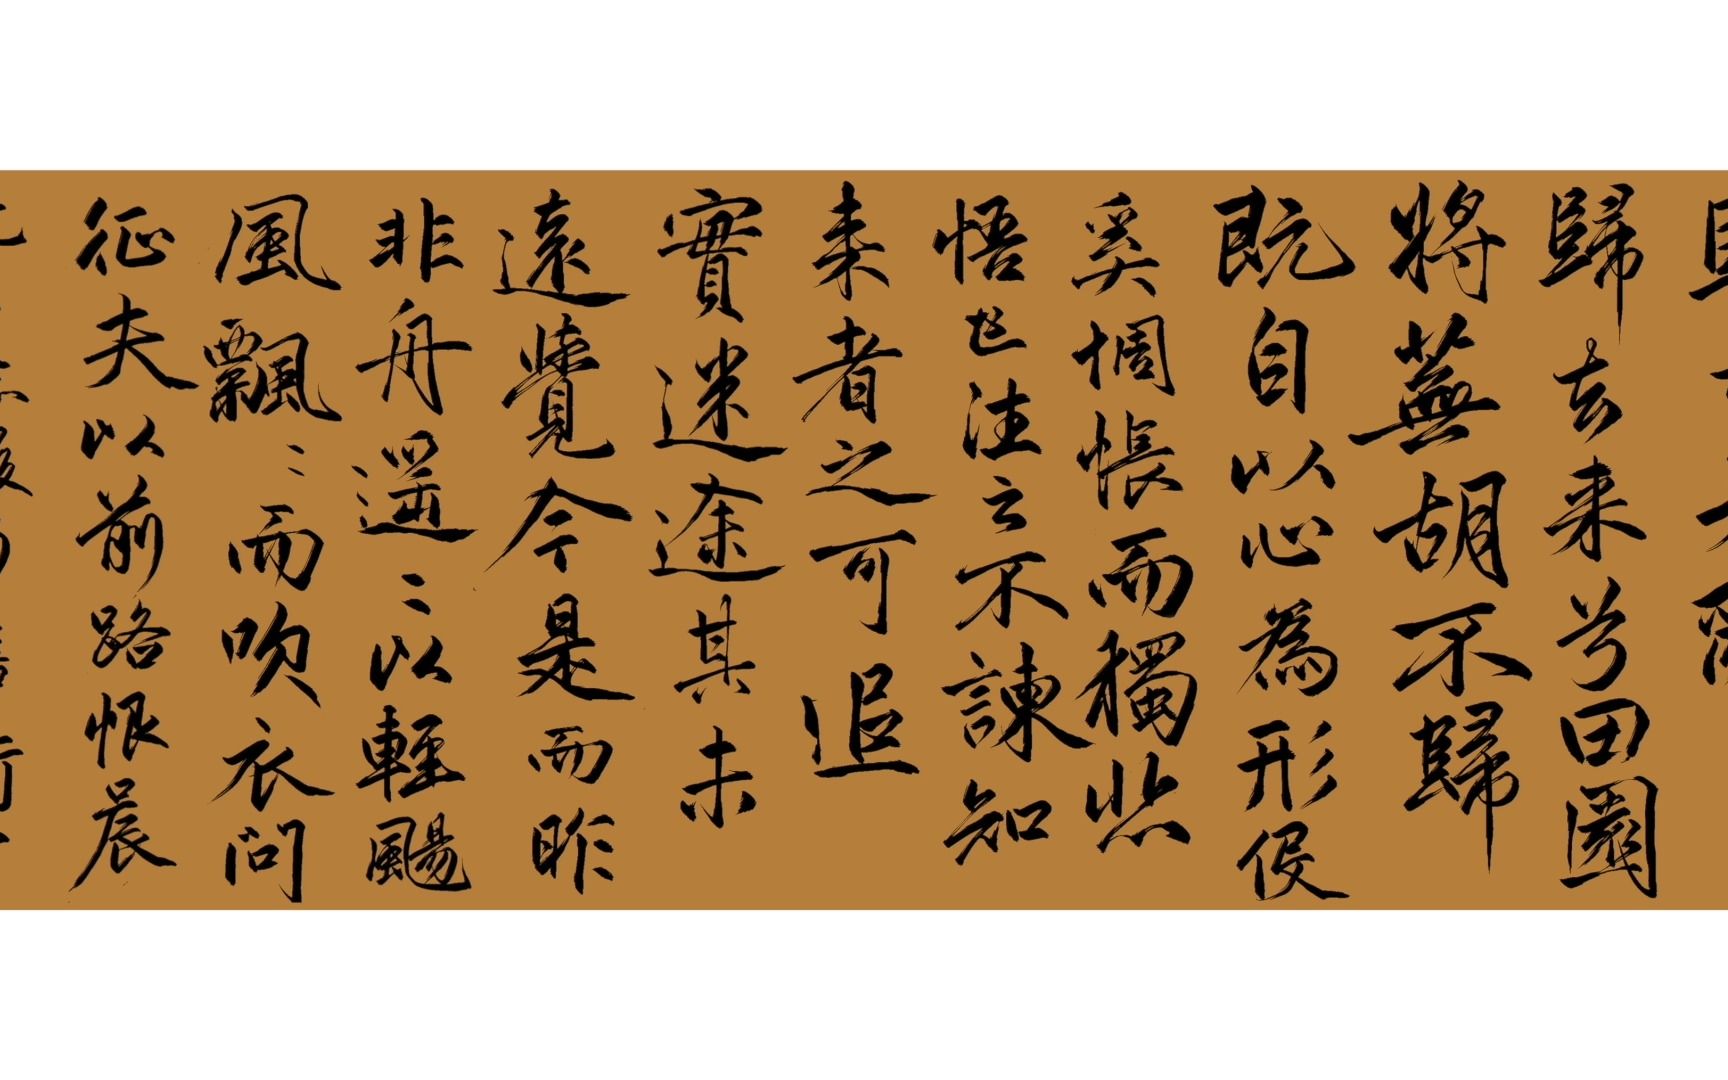 歸去来兮田園
將蕪胡不歸
既自以心為形役
奚惆悵而獨悲
悟已往之不諫知
来者之可追
實迷途其未
遠覺今是而昨
非舟遥〻以輕颺
風飄〻而吹衣問
征夫以前路恨晨